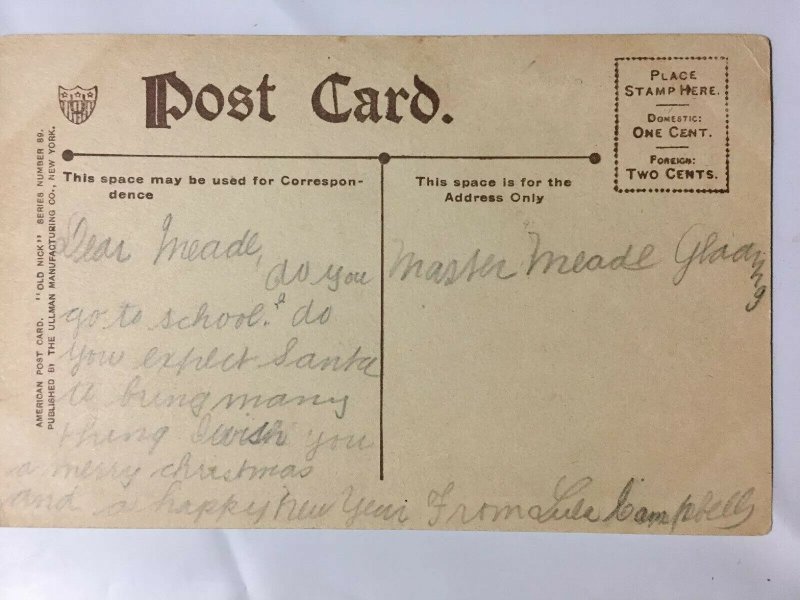 Post Card.
PLACE
STAMP HERE.
DOMESTIC:
ONE CENT.
FOREIGN:
TWO CENTS.
AMERICAN POST CARD. "OLD NICK" SERIES NUMBER 89.
PUBLISHED BY THE ULLMAN MANUFACTURING CO., NEW YORK.
This space may be used for Correspon-
dence
This space is for the
Address Only
Dear Meade,
do you
go to school? do
you expect Santa
to bring many
thing I wish you
a merry christmas
and a happy New Year From Lula Campbell
Master Meade Glading